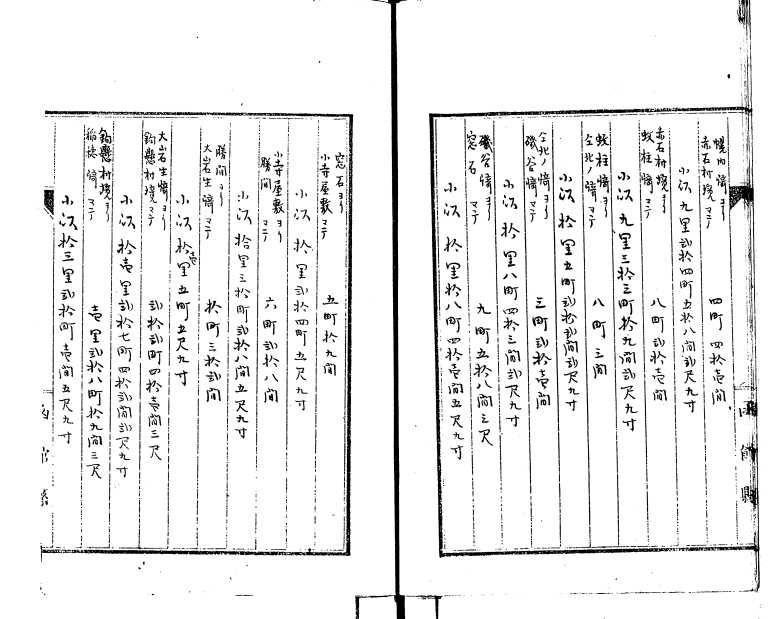 赤石村境マテ
四町四拾壱間
小以九里弐拾四町五拾八間弐尺九寸
赤石村境ヨリ
蚊柱崎マテ
八町弐拾壱間
小以九里三拾三町拾九間弐尺九寸
蚊柱崎ヨリ
仝北ノ崎マテ
八町三間
小以拾里五町弐拾弐間弐尺九寸
仝北ノ崎ヨリ
磯谷崎マテ
三町弐拾壱間
小以拾里八町四拾三間弐尺九寸
磯谷崎ヨリ
窓石マテ
九町五拾八間三尺
小以拾里拾八町四拾壱間五尺九寸
函館縣
窓石ヨリ
小寺屋敷マテ
五町拾九間
小以拾里弐拾四町五尺九寸
小寺屋敷ヨリ
勝間マテ
六町弐拾八間
小以拾里三拾町弐拾八間五尺九寸
勝間ヨリ
大岩生崎マテ
拾町三拾弐間
小以拾壱里五町五尺九寸
大岩生崎ヨリ
鈎懸村境マテ
弐拾弐町四拾壱間三尺
小以拾壱里弐拾七町四拾弐間弐尺九寸
鈎懸村境ヨリ
稲穂崎マテ
壱里弐拾八町拾九間三尺
小以拾三里弐拾町壱間五尺九寸
函館縣